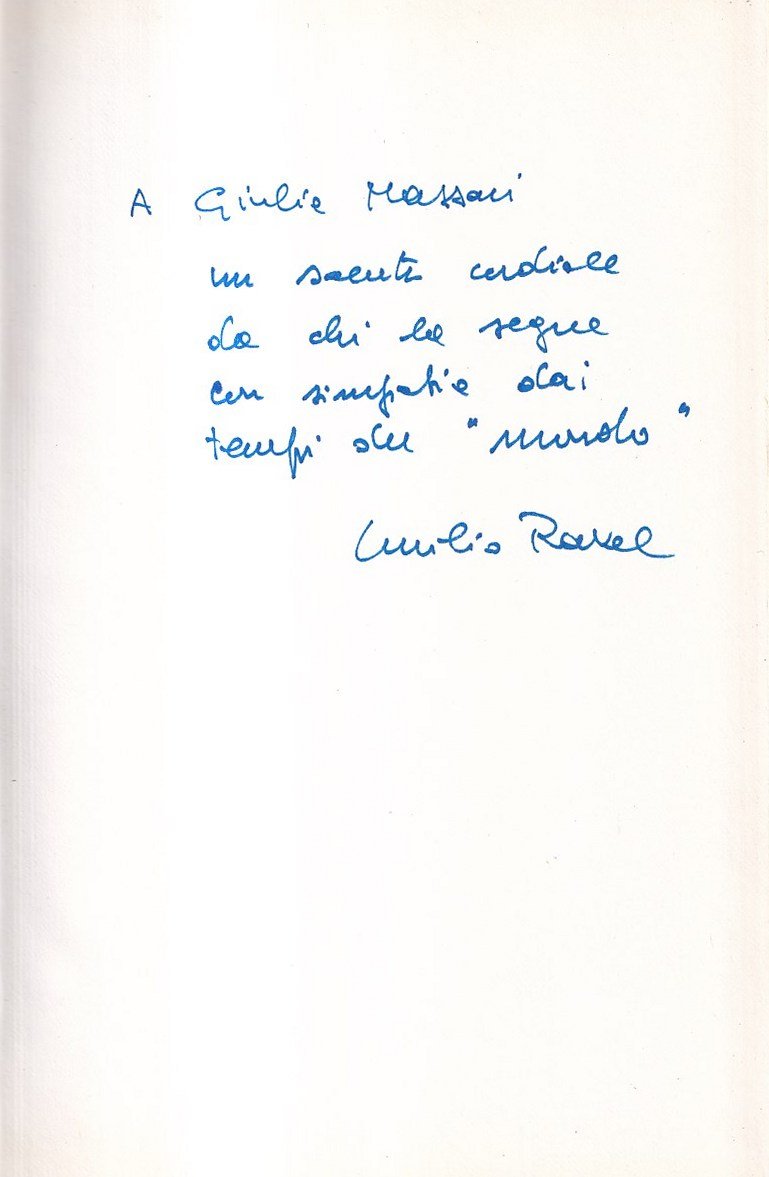 A Giulia Massari
un saluto cordiale
da chi la segue
con simpatia dai
tempi del "mondo"
Emilio Ravel